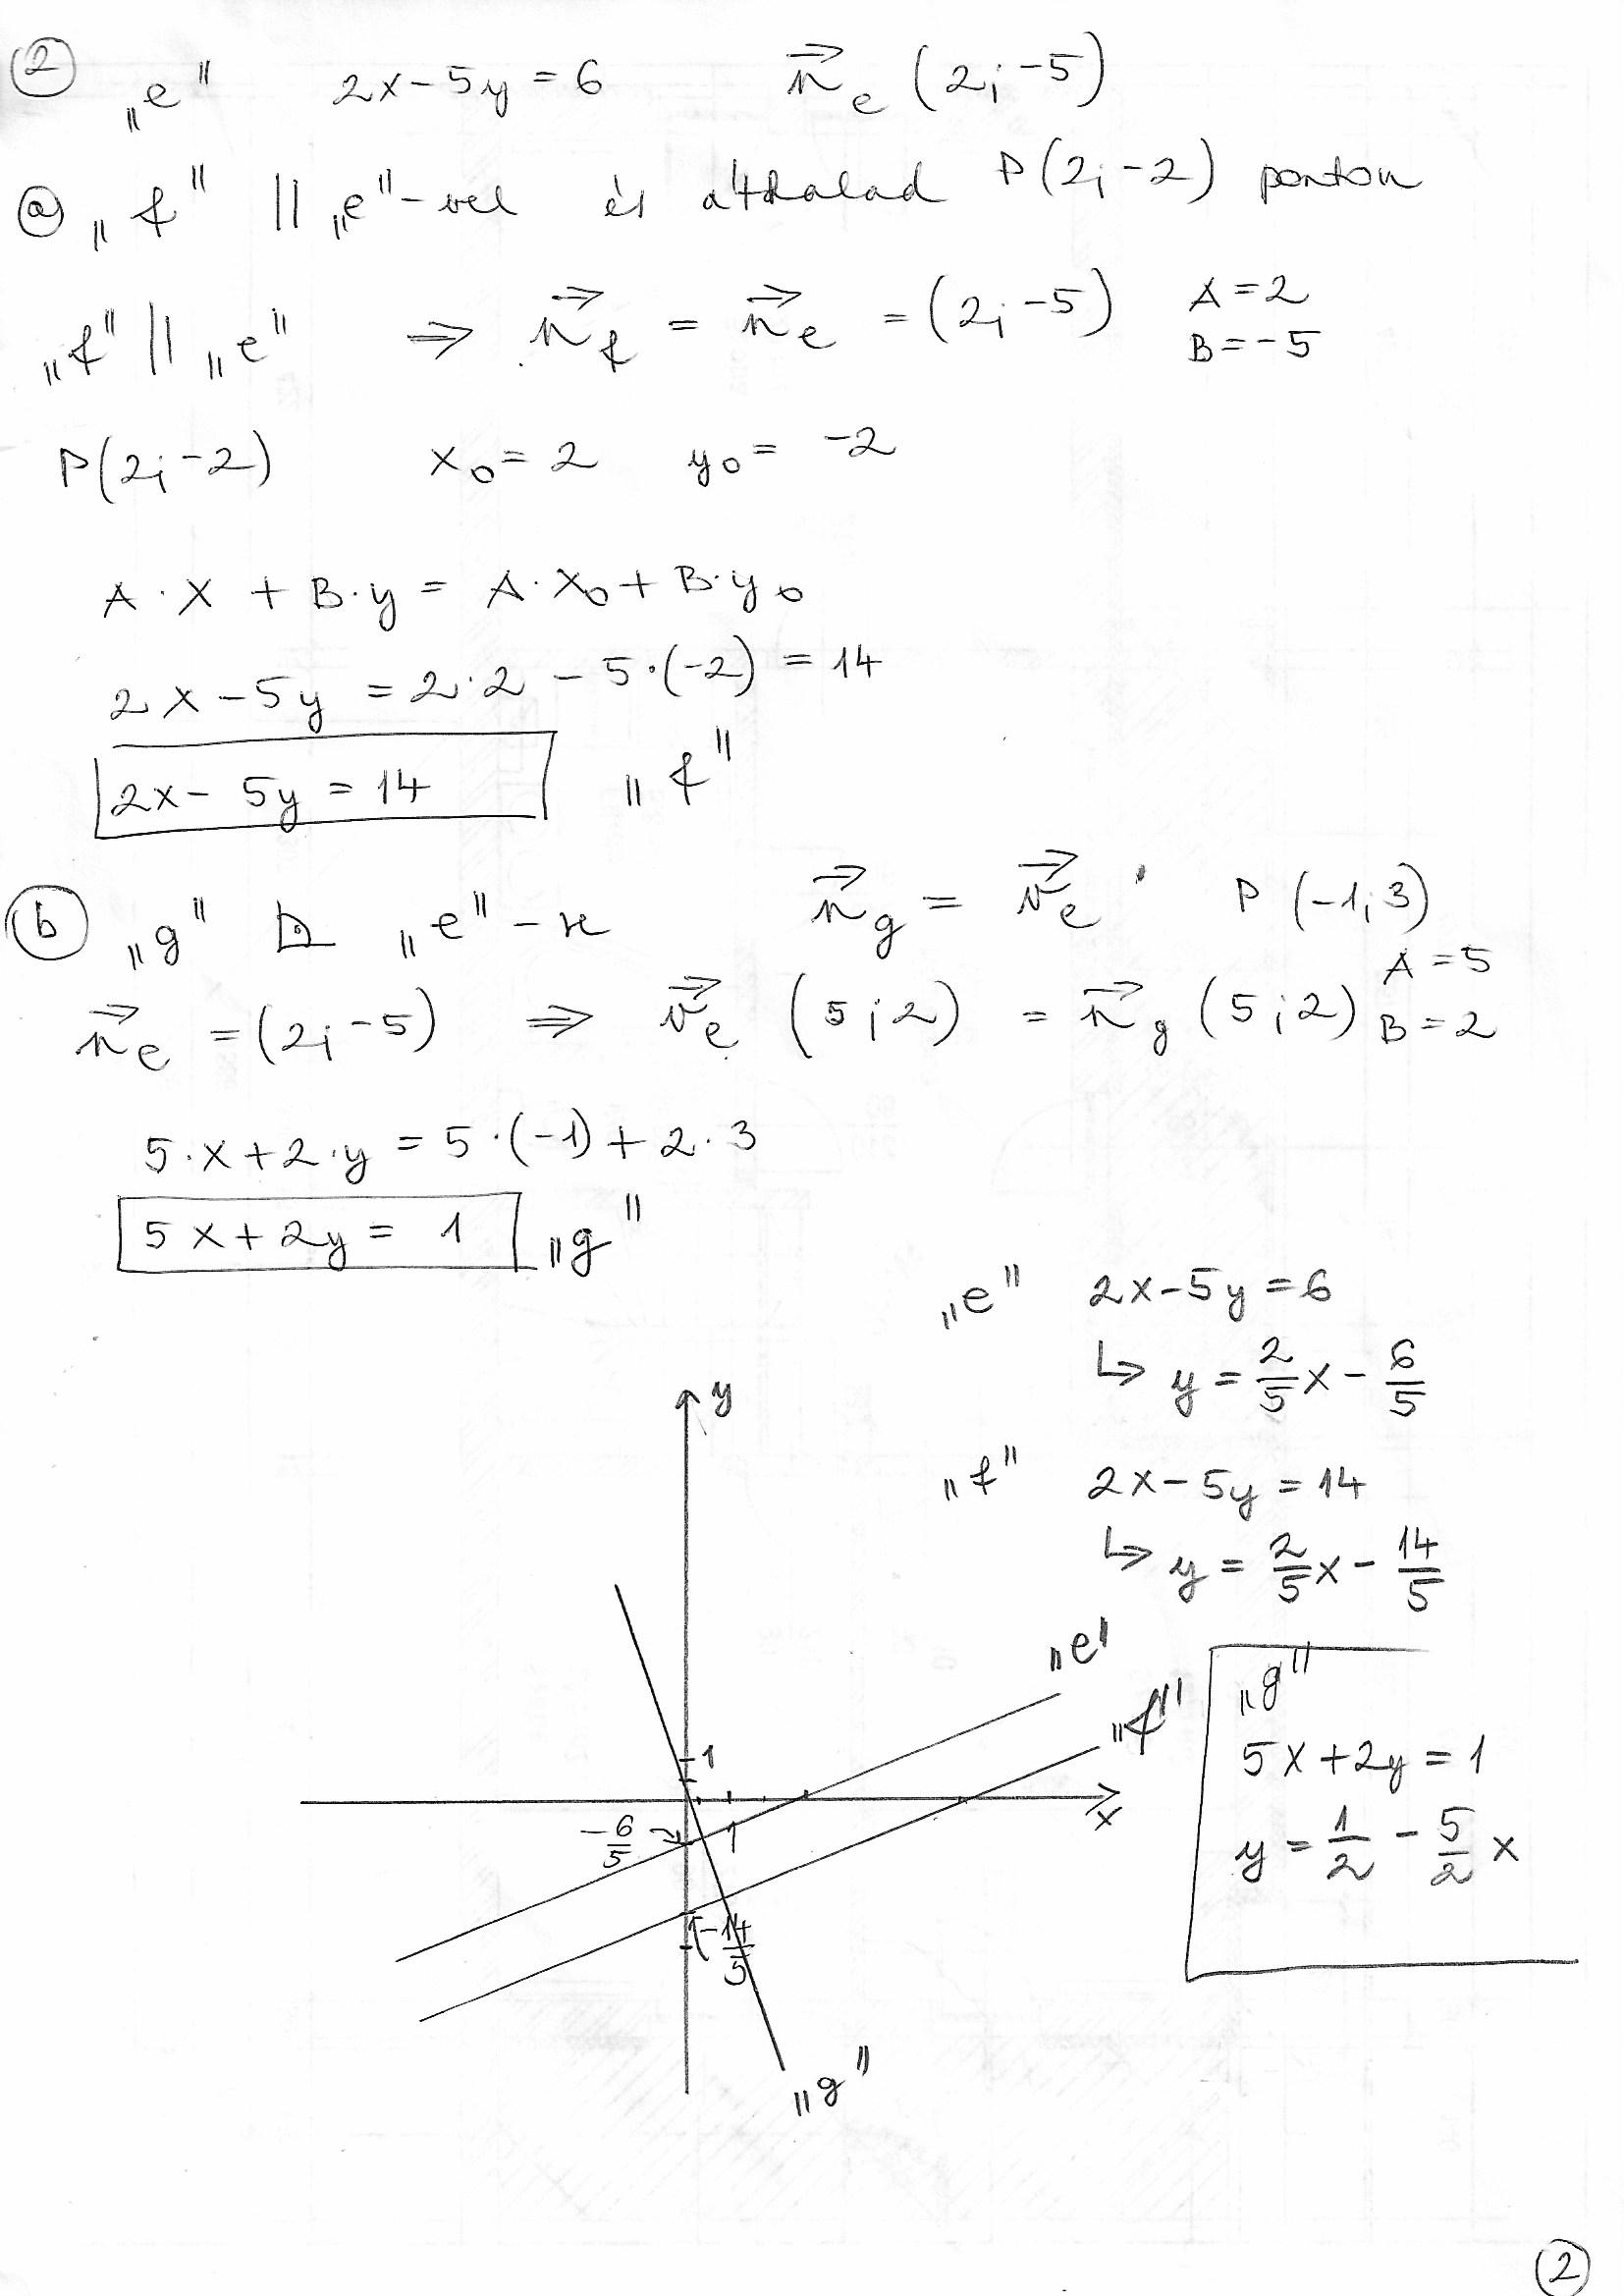 ② „e" 2x-5y=6 n⃗e (2;-5)
ⓐ „f" || „e"-vel és áthalad P(2;-2) ponton
„f" || „e" ⇒ n⃗f = n⃗e = (2;-5) A=2
B=-5
P(2;-2) x₀=2 y₀= -2
A·x + B·y = A·x₀ + B·y₀
2x-5y = 2·2 - 5·(-2) = 14
2x- 5y = 14 „f"
ⓑ „g" ⊾ „e"-re n⃗g = v⃗e P (-1;3)
n⃗e =(2;-5) ⇒ v⃗e (5;2) = n⃗g (5;2) A=5
B=2
5·x+2·y = 5·(-1)+2·3
5x+2y = 1 „g"
„e" 2x-5y=6
↳ y = 2/5 x - 6/5
„f" 2x-5y=14
↳ y = 2/5 x - 14/5
„g"
5x+2y=1
y = 1/2 - 5/2 x
y
„e"
„f"
1
x
1
-6/5
-14/5
„g"
②